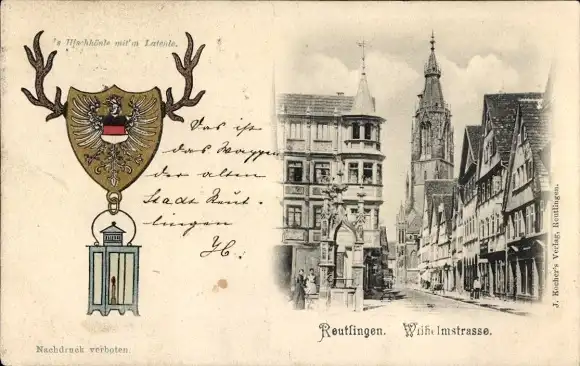 's Hirschhörnle mit'm Laternle.
Das ist
das Wappen
der alten
Stadt Reut-
lingen
Reutlingen. Wilhelmstrasse.
J. Kocher's Verlag, Reutlingen.
Nachdruck verboten.